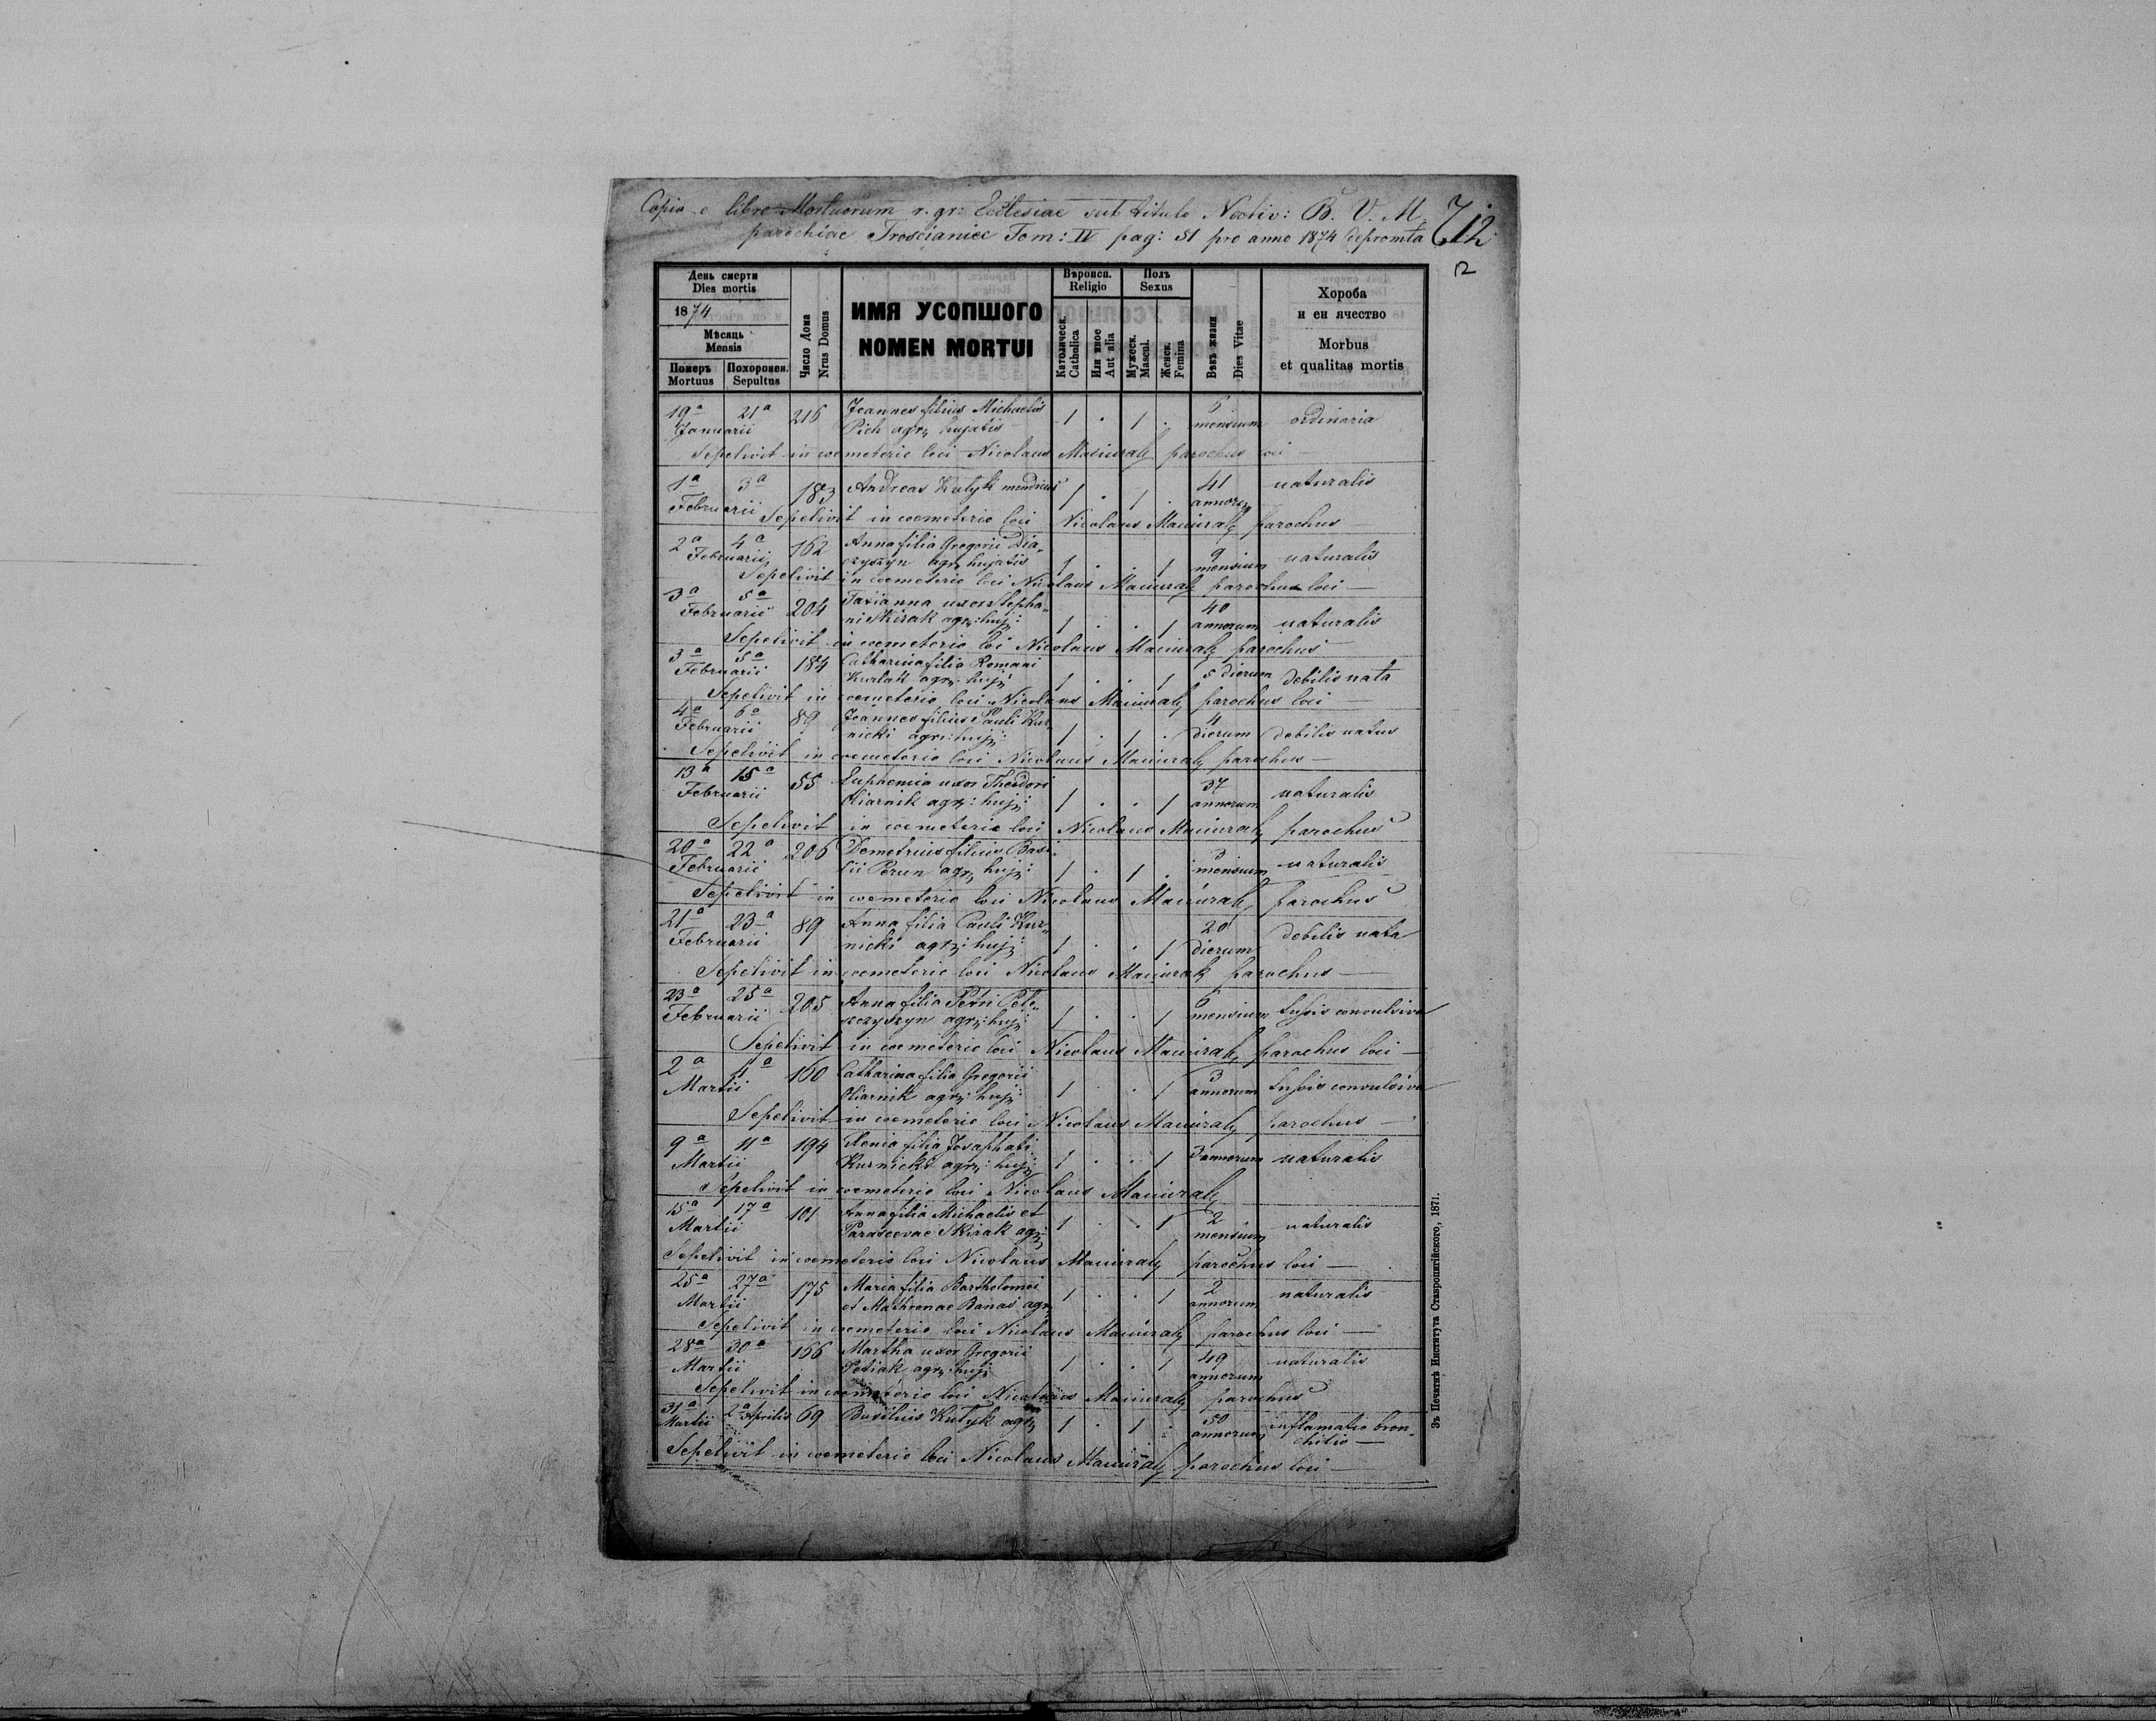 Copia e libro Mortuorum r. gr: Ecclesiae sub titulo Nativ: B. V. M.
parochiae Troscianiec Tom: IV pag: 51 pro anno 1874 depromta
712
12
День смерти
Dies mortis
1874
Мѣсяць
Mensis
Померъ
Mortuus
Похоронен.
Sepultus
Число Дома
Nrus Domus
ИМЯ УСОПШОГО
NOMEN MORTUI
Вѣроисп.
Religio
Католическ.
Catholica
Или иное
Aut alia
Полъ
Sexus
Мужеск.
Mascul.
Женск.
Femina
Вѣкъ жизни
Dies Vitae
Хороба
и еи ячество
Morbus
et qualitas mortis
19a 21a 216 Joannes filius Michaelis 1 . 1 . 6 ordinaria
Januarii Pich agr. hujatis mensium
Sepelivit in coemeterio loci Nicolaus parochus loci
1a 3a 183 Andreas Kutyk mendicus 1 . 1 . 41 naturalis
Februarii annorum
Sepelivit in coemeterio loci Nicolaus parochus
2a 4a 162 Anna filia Gregorii Dia- 1 . . 1 9 naturalis
Februarii czyszyn agr. hujatis mensium
Sepelivit in coemeterio loci Nicolaus parochus loci
3a 5a 204 Taxianna uxor Stepha- 1 . . 1 40 naturalis
Februarii ni Skirak agr: huj: annorum
Sepelivit in coemeterio loci Nicolaus parochus
3a 5a 184 Catharina filia Romani 1 . . 1 5 dierum debilis nata
Februarii Kurlak agr: huj:
Sepelivit in coemeterio loci Nicolaus parochus loci
4a 6a 89 Joannes filius Pauli Kur- 1 . 1 . 4 debilis natus
Februarii nicki agr: huj: dierum
Sepelivit in coemeterio loci Nicolaus parochus
13a 15a 55 Euphemia uxor Theodori 1 . . 1 37 naturalis
Februarii Oliarnik agr: huj: annorum
Sepelivit in coemeterio loci Nicolaus parochus
20a 22a 206 Demetrius filius Basi- 1 . 1 . 3 naturalis
Februarii lii Perun agr. huj: mensium
Sepelivit in coemeterio loci Nicolaus parochus
21a 23a 89 Anna filia Pauli Kur- 1 . . 1 20 debilis nata
Februarii nicki agr: huj: dierum
Sepelivit in coemeterio loci Nicolaus parochus
23a 25a 205 Anna filia Petri Pele- 1 . . 1 6 tussis convulsiva
Februarii szczyszyn agr: huj: mensium
Sepelivit in coemeterio loci Nicolaus parochus loci
2a 4a 160 Catharina filia Gregorii 1 . . 1 3 tussis convulsiva
Martii Oliarnik agr: huj: annorum
Sepelivit in coemeterio loci Nicolaus parochus
9a 11a 194 filia Josaphati 1 . . 1 3 annorum naturalis
Martii Kurnicki agr: huj:
Sepelivit in coemeterio loci Nicolaus
15a 17a 101 Anna filia Michaelis et 1 . . 1 2 naturalis
Martii Parascevae Skirak agr. mensium
Sepelivit in coemeterio loci Nicolaus parochus loci
25a 27a 175 Maria filia Bartholomei 1 . . 1 2 naturalis
Martii et Mathronae Banas agr. annorum
Sepelivit in coemeterio loci Nicolaus parochus loci
28a 30a 166 Martha uxor Gregorii 1 . . 1 49 naturalis
Martii agr: huj: annorum
Sepelivit in coemeterio loci Nicolaus parochus
31a 2a Aprilis 69 Basilius Kutyk agr. 1 . 1 . 50 inflamatio bron-
Martii annorum chitis
Sepelivit in coemeterio loci Nicolaus parochus loci
Зъ Печатнѣ Института Ставропигійского, 1871.